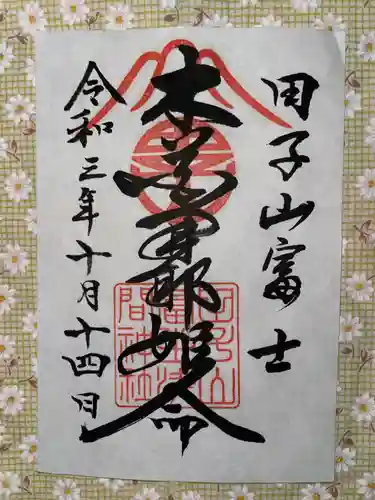 田子山富士
木花開耶姫命
令和三年十月十四日
田子山
富士浅
間神社